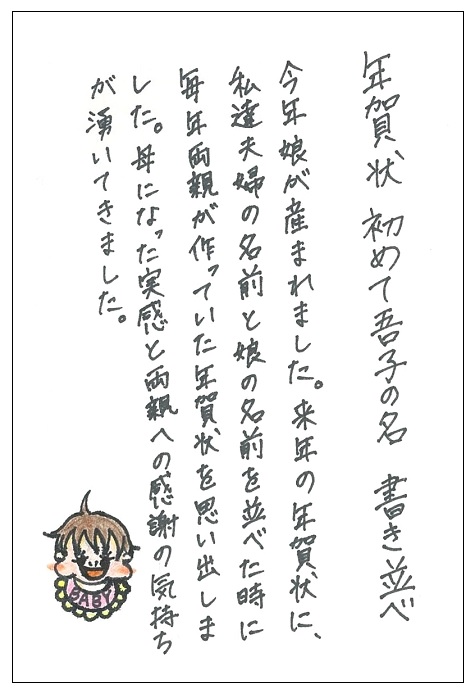 年賀状 初めて吾子の名 書き並べ
今年娘が産まれました。来年の年賀状に、
私達夫婦の名前と娘の名前を並べた時に
毎年両親が作っていた年賀状を思い出しま
した。母になった実感と両親への感謝の気持ち
が湧いてきました。
BABY